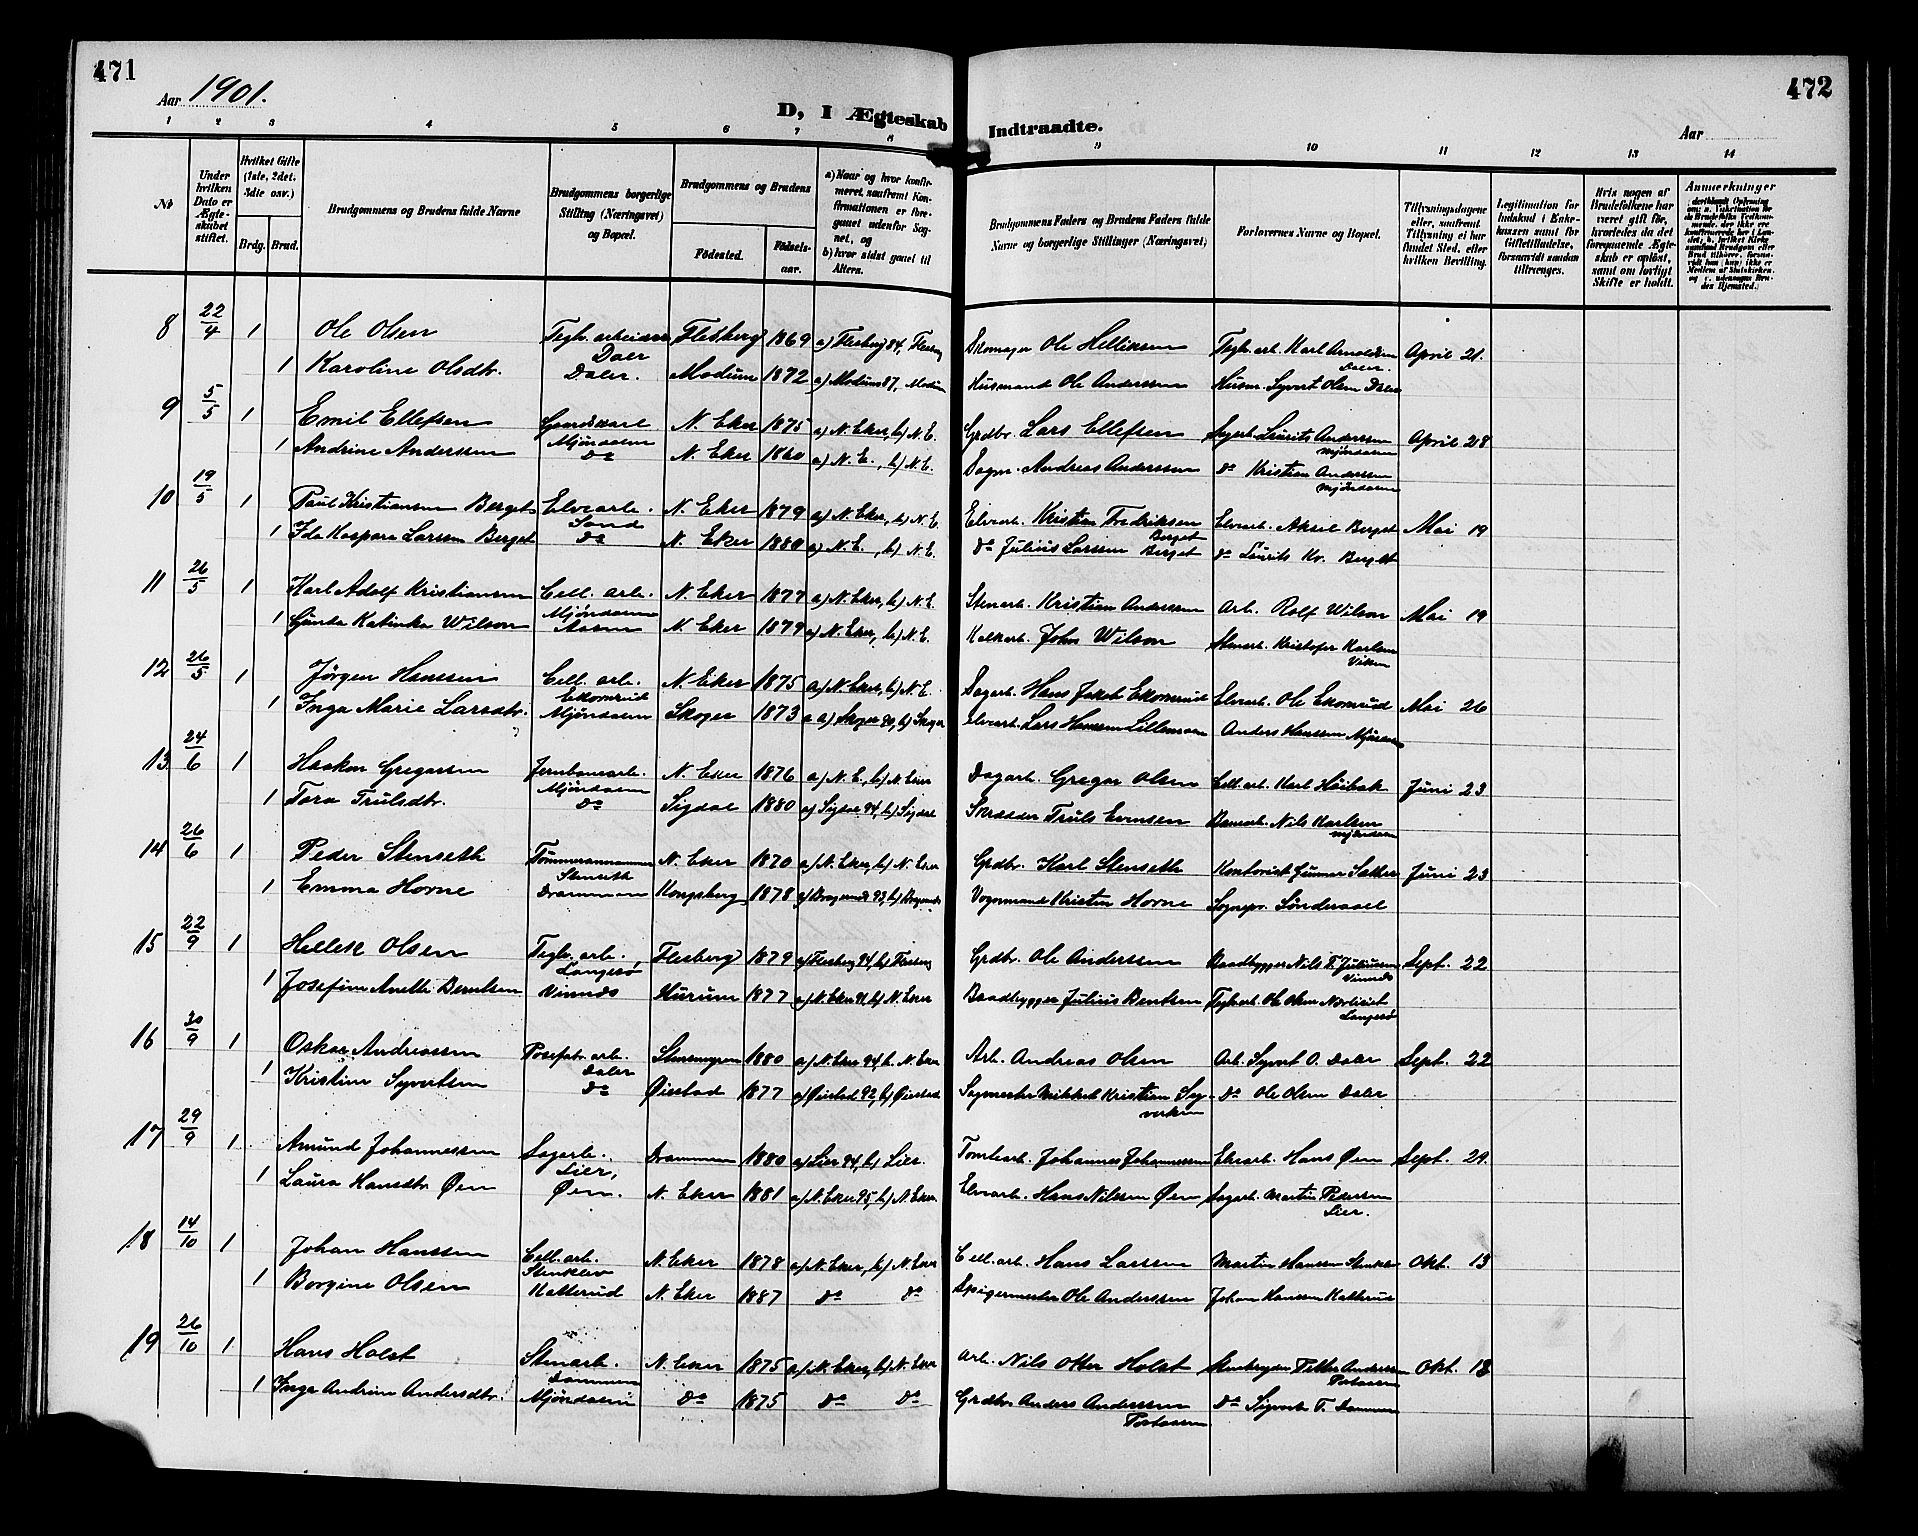 471
Aar 1901.
D, I Ægteskab Indtraadte.
472
Aar
1 2 3 4 5 6 7 8 9 10 11 12 13 14
No
Under hvilken Dato er Ægteskabet stiftet.
Hvilket Gifte (1ste, 2det, 3die osv.)
Brdg. Brud.
Brudgommens og Brudens fulde Navne
Brudgommens borgerlige Stilling (Næringsvei) og Bopæl.
Brudgommens og Brudens
Födested. Födsels-aar.
a) Naar og hvor konfirmeret, saafremt Konfirmationen er foregaaet udenfor Sognet, og
b) hvor sidst gaaet til Alters.
Brudgommens Faders og Brudens Faders fulde Navne og borgerlige Stillinger (Næringsvei)
Forlovernes Navne og Bopæl.
Tillysningsdagene eller, saafremt Tillysning ei har fundet Sted, efter hvilken Bevilling.
Legitimation for Indskud i Enkekassen samt for Giftetilladelse, forsaavidt saadan tiltrænges.
Hvis nogen af Brudefolkene har været gift för, hvorledes da det foregaaende Ægteskab er oplöst, samt om lovligt Skifte er holdt.
Anmerkninger
8 22/4 1 Ole Olsen Teglv. arbeider Daler Flesberg 1869 a) Flesberg 84, Flesberg Ole Helliksen Teglv. arb. Karl Arnoldsen Daler. April 21.
1 Karoline Olsdtr. Daler. Modum 1872 a) Modum 87, Modum Husmand Ole Anderssen Husm. Syvert Olsen Daler
9 5/5 1 Emil Ellefsen Gaardskarl Mjøndalen N. Eker 1875 a) N. Eker, b) N. E. Grdbr. Lars Ellefsen Lauritz Anderssen Mjøndalen April 28
1 Andrine Anderssen Do N. Eker 1860 a) N. E., b) N. E. Andreas Anderssen Do Kristian Anderssen Mjøndalen
10 19/5 1 Paul Kristiansen Berget Elvearb. Sand N. Eker 1879 a) N. Eker, b) N. E. Elvearb. Kristian Fredriksen Berget Elvearb. Aksel Berget Mai 19
1 Ida Kaspara Larssen Berget Do N. Eker 1880 a) N. E., b) N. E. Do Julius Larssen Berget Do Laurits Kr. Berget
11 26/5 1 Karl Adolf Kristiansen Cell. arb. Mjøndalen N. Eker 1877 a) N. Eker, b) N. E. Stenarb. Kristian Anderssen Arb. Rolf Wilson Mai 19
1 Katinka Wilson Aasen N. Eker 1879 a) N. Eker, b) N. E. John Wilson Stenarb. Kristofer Karlsen Viken
12 26/5 1 Jørgen Hanssen Cell. arb. Ekornrud N. Eker 1875 a) N. Eker, b) N. E. Dagarb. Hans Jakob Ekornrud Elvearb. Ole Ekornrud Mai 26
1 Inga Marie Larsdtr. Mjøndalen Skoger 1873 a) Skoger 90, b) Skoger Elvearb. Lars Hanssen Lillemoen Anders Hanssen
13 24/6 1 Haakon Gregersen Jernbanearb. Mjøndalen N. Eker 1876 a) N. E., b) N. Eker Dagarb. Gregar Olsen Cell. arb. Karl Høibak Juni 23
1 Tora Trulsdtr. Do Sigdal 1880 a) Sigdal 94, b) Sigdal Skrædder Truls Evensen Nils Karlsen Mjøndalen
14 26/6 1 Peder Stenseth Stenseth N. Eker 1870 a) N. Eker, b) N. Eker Grdbr. Karl Stenseth Kontorist Gunnar Sætter Juni 23
1 Emma Horne Drammen Kongsberg 1878 a) Bragernes 93, b) Bragernes Vognmand Kristen Horne Sognepr. Sønderaal
15 22/9 1 Hellek Olsen Teglv. arb. Langesø Flesberg 1879 a) Flesberg 94, b) Flesberg Grdbr. Ole Anderssen Baadbygger Nils F. Juliussen Vinnæs Sept. 22
1 Josefine Anette Berntsen Vinnæs Hurum 1877 a) N. Eker 91, b) N. Eker Baadbygger Julius Berntsen Teglv. arb. Ole Olsen Langesø
16 30/9 1 Oskar Andreassen arb. Daler 1880 a) N. Eker 94, b. N. Eker Arb. Andreas Olsen Arb. Syvert O. Daler Sept. 22
1 Kristine Syvertsen Do Øiestad 1877 a) Øiestad 92, b) Øiestad Kristian Do Ole Olsen Daler
17 29/9 1 Amund Johannessen Sagarb. Lier, Drammen 1880 a) Lier 94, b) Lier. Tomtearb. Johannes Johannessen Elvearb. Hans Øen Sept. 29.
1 Laura Hansdtr. Øen Øen. N. Eker 1881 a) N. Eker 95, b) N. Eker Elvearb. Hans Nilssen Øen Sagarb. Martin Pedersen Lier.
18 14/10 1 Johan Hanssen Cell. arb. Stenklev N. Eker 1878 a) N. Eker, b) N. Eker Cell. arb. Hans Larssen Martin Hanssen Okt. 13
1 Borgine Olsen Hatterud N. Eker 1887 Do Do Spigermester Ole Anderssen Johan Hanssen Hatterud
19 26/10 1 Hans Holst Stenarb. Dammen N. Eker 1875 a) N. Eker, b) N. Eker Arb. Nils Otter Holst Petter Anderssen Portaasen Okt. 13
1 Inga Andrine Andersdtr. Mjøndalen Do 1875 Do Do Grdbr. Anders Anderssen Portaasen Do Sigvart T. Dammen